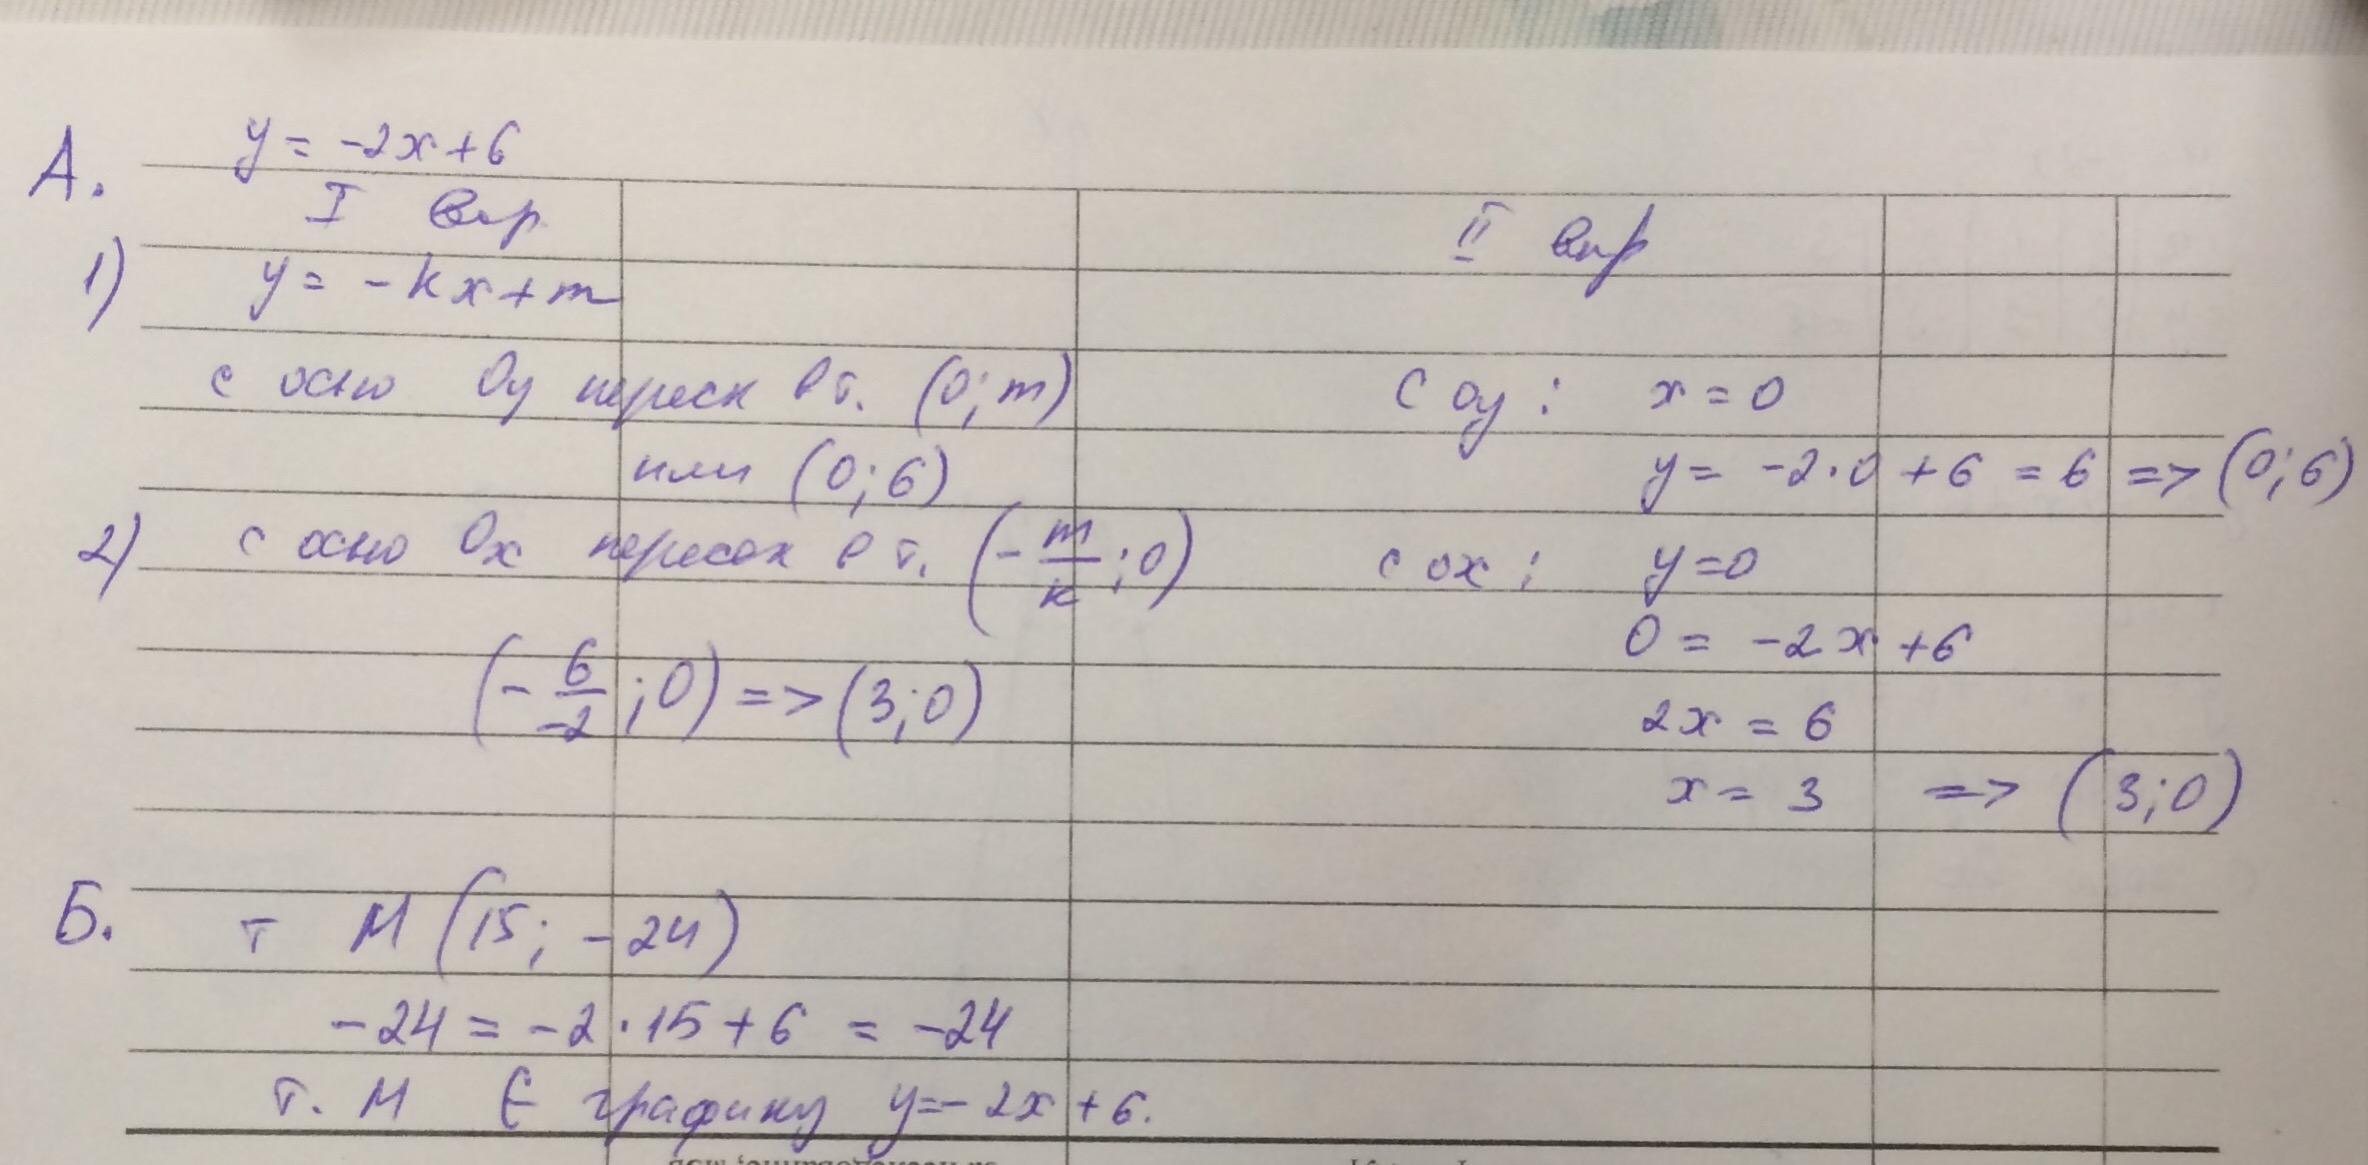 А. y = -2x+6
I вар II вар
1) y = -kx+m
с осью Оу пересек в т. (0; m) С оу : x = 0
или (0; 6) y = -2·0 + 6 = 6 => (0; 6)
2) с осью Ох пересек в т. (-m/к ; 0) с ох : y=0
0 = -2x +6
(-6/-2 ; 0) => (3; 0) 2x = 6
x = 3 => (3; 0)
Б. т М (15; -24)
-24 = -2·15+6 = -24
т. М Є графику y=-2x+6.